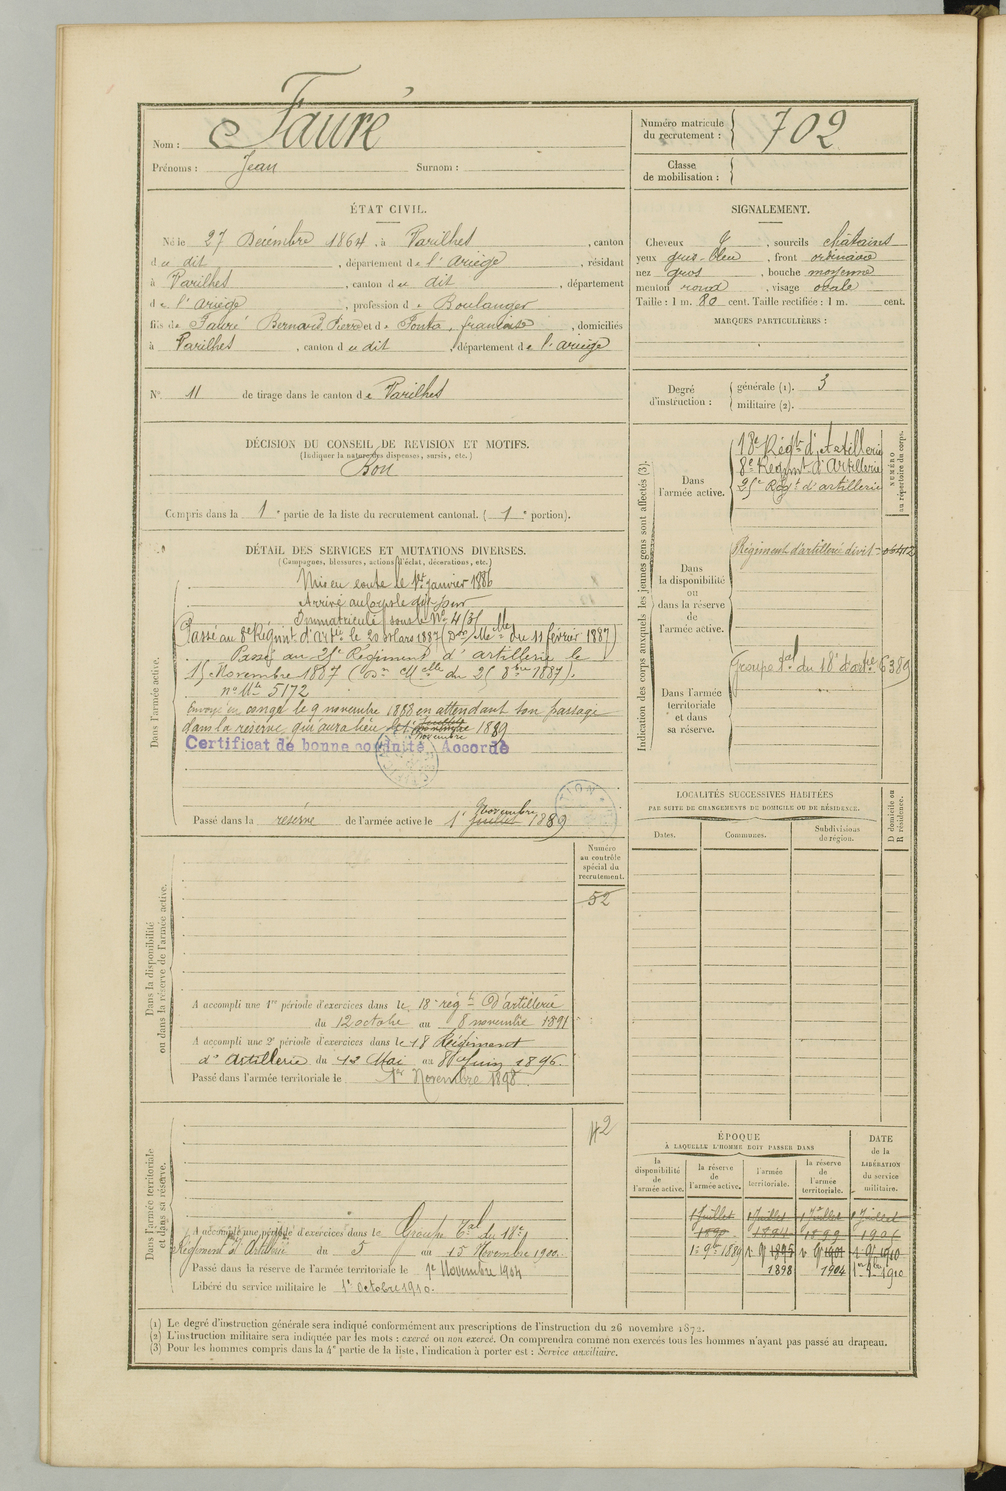 Nom : Fauré
Prénoms : Jean Surnom :
Numéro matricule du recrutement : 702
Classe de mobilisation :
ÉTAT CIVIL.
Né le 27 Décembre 1864, à Varilhes, canton
du dit, département de l'Ariège, résidant
à Varilhes, canton du dit, département
de l'Ariège, profession de Boulanger
fils de Fauré Bernard Pierre et de Fonta, françoise, domiciliés
à Varilhes, canton du dit, département de l'Ariège
N° 11 de tirage dans le canton de Varilhes
DÉCISION DU CONSEIL DE REVISION ET MOTIFS.
(Indiquer la nature des dispenses, sursis, etc.)
Bon
Compris dans la 1e partie de la liste du recrutement cantonal. (1e portion).
SIGNALEMENT.
Cheveux , sourcils châtains
yeux gris-bleu, front ordinaire
nez gros, bouche moyenne
menton rond, visage ovale
Taille : 1 m. 80 cent. Taille rectifiée : 1 m. cent.
MARQUES PARTICULIÈRES :
Degré d'instruction : générale (1). 3
militaire (2).
DÉTAIL DES SERVICES ET MUTATIONS DIVERSES.
(Campagnes, blessures, actions d'éclat, décorations, etc.)
Dans l'armée active.
Mis en route le 1er janvier 1886
Arrivé au corps le dit jour
Immatriculé sous le N°
Passé au 8e Régimt d'artie le 20 Mars 1887 (Don Melle du 11 février 1887)
Passé au 25e Régiment d'artillerie le
15 Novembre 1887 (Don Melle du 25 8bre 1887).
n° Mle 5172
Envoyé en congé le 9 novembre 1888 en attendant son passage
dans la réserve qui aura lieu le 1er Novembre 1889
Certificat de bonne conduite Accordé
Passé dans la réserve de l'armée active le 1er Juillet Novembre 1889
Dans la disponibilité ou dans la réserve de l'armée active.
Numéro au contrôle spécial du recrutement.
52
A accompli une 1re période d'exercices dans le 18e régt d'artillerie
du 12 octobre au 8 novembre 1891
A accompli une 2e période d'exercices dans le 18 Régiment
d'Artillerie du 12 Mai au 8 Juin 1896.
Passé dans l'armée territoriale le 1er Novembre 1898.
Dans l'armée territoriale et dans sa réserve.
42
A accompli une période d'exercices dans le Groupe Tal du 18e
Régiment d'Artillerie du 5 au 15 Novembre 1900.
Passé dans la réserve de l'armée territoriale le 1er Novembre 1904
Libéré du service militaire le 1er octobre 1910.
Indication des corps auxquels les jeunes gens sont affectés (3).
NUMÉRO au répertoire du corps.
Dans l'armée active.
18e Régt d'Artillerie
8e Régimt d'Artillerie
25e Régt d'artillerie
Dans la disponibilité ou dans la réserve de l'armée active.
Régiment d'artillerie divit
Dans l'armée territoriale et dans sa réserve.
Groupe tal du 18e d'artie 6389
LOCALITÉS SUCCESSIVES HABITÉES
PAR SUITE DE CHANGEMENTS DE DOMICILE OU DE RÉSIDENCE.
D domicile ou R résidence.
Dates. Communes. Subdivisions de région.
ÉPOQUE
À LAQUELLE L'HOMME DOIT PASSER DANS
DATE de la LIBÉRATION du service militaire.
la disponibilité de l'armée active. la réserve de l'armée active. l'armée territoriale. la réserve de l'armée territoriale.
1 Juillet 1 Juillet 1 Juillet 1 Juillet
1890 1894 1899 1905
1er 9bre 1889 1895 1901 1910
1898 1904 1910
(1) Le degré d'instruction générale sera indiqué conformément aux prescriptions de l'instruction du 26 novembre 1872.
(2) L'instruction militaire sera indiquée par les mots : exercé ou non exercé. On comprendra comme non exercés tous les hommes n'ayant pas passé au drapeau.
(3) Pour les hommes compris dans la 4e partie de la liste, l'indication à porter est : Service auxiliaire.